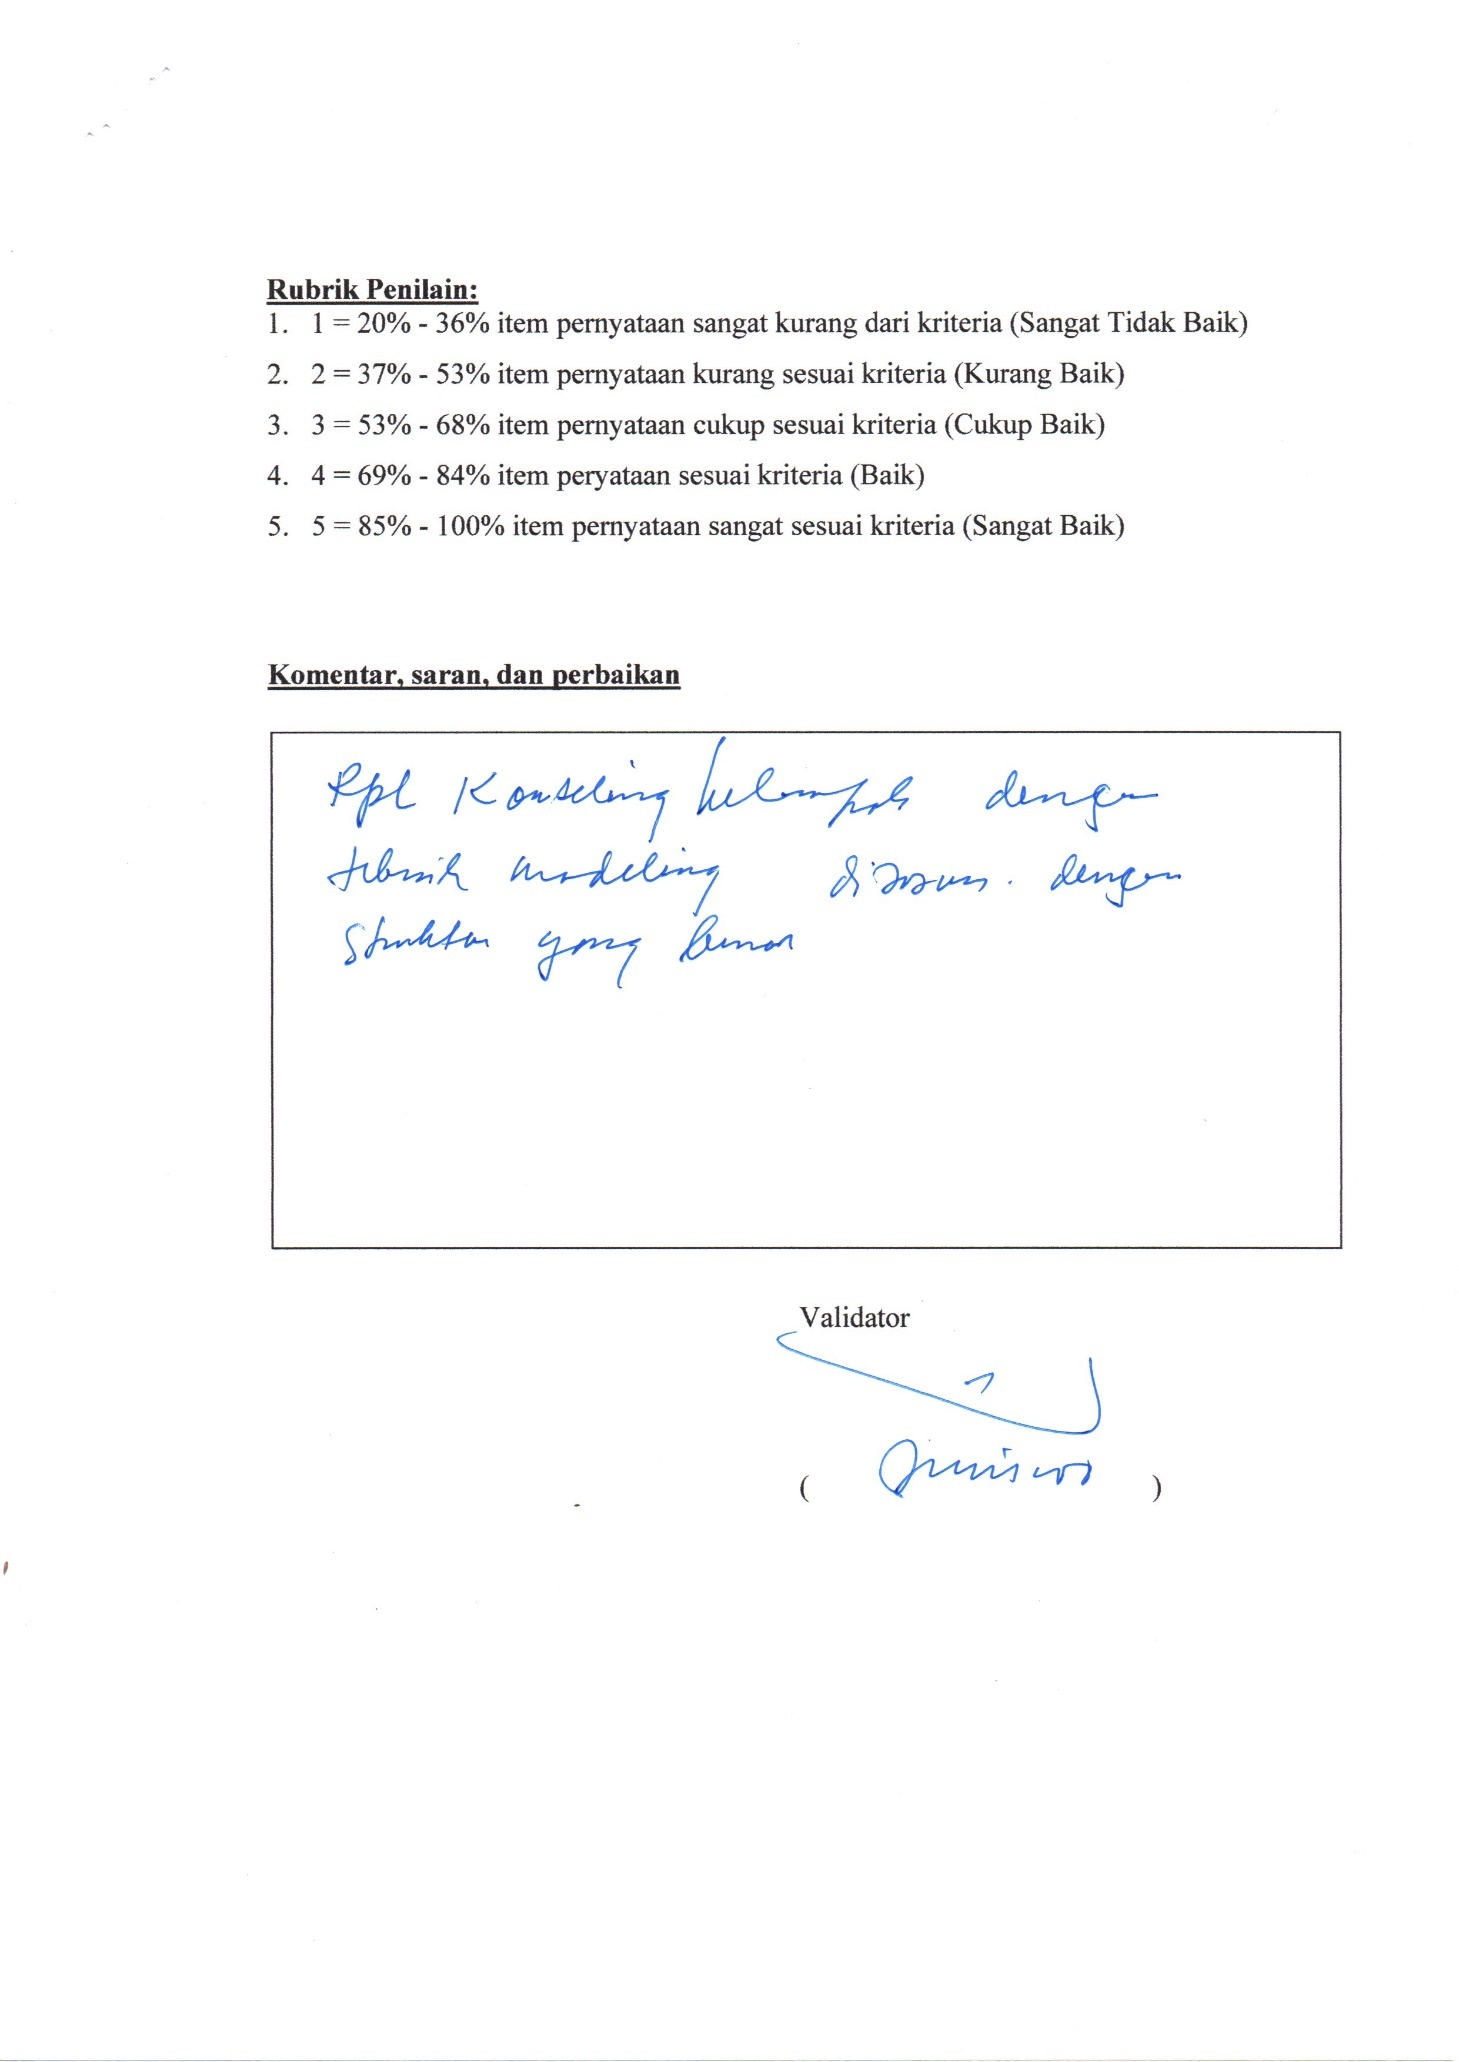 Rubrik Penilain:
1. 1 = 20% - 36% item pernyataan sangat kurang dari kriteria (Sangat Tidak Baik)
2. 2 = 37% - 53% item pernyataan kurang sesuai kriteria (Kurang Baik)
3. 3 = 53% - 68% item pernyataan cukup sesuai kriteria (Cukup Baik)
4. 4 = 69% - 84% item peryataan sesuai kriteria (Baik)
5. 5 = 85% - 100% item pernyataan sangat sesuai kriteria (Sangat Baik)
Komentar, saran, dan perbaikan
Rpl Konseling kelompok dengan
teknik modeling disusun dengan
struktur yang benar
Validator
( )